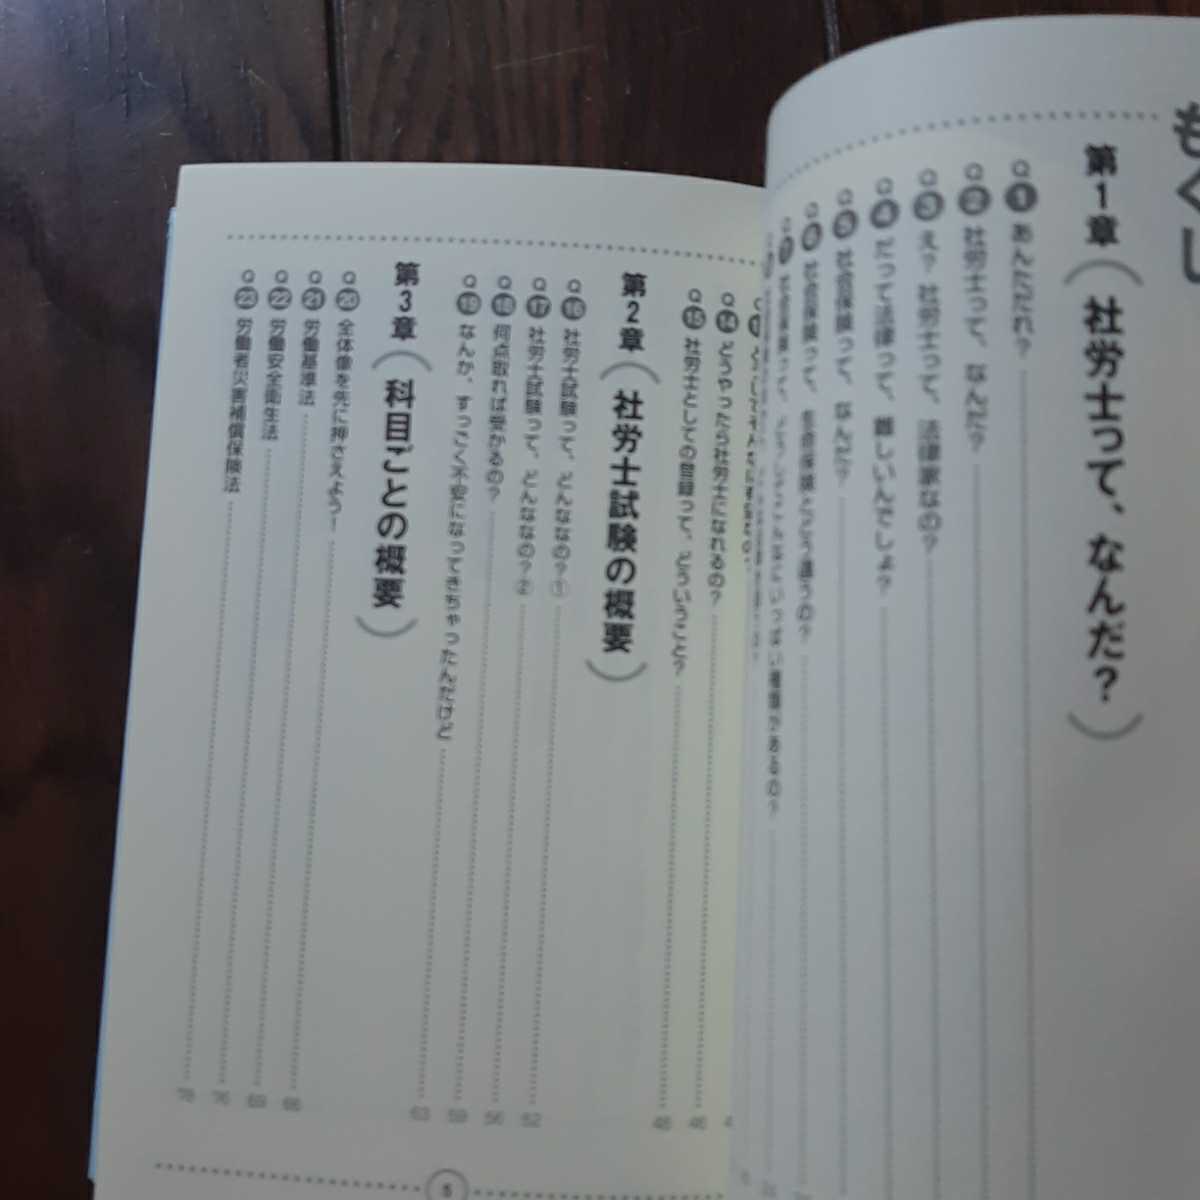 もくじ
第1章 (社労士って、なんだ？)
Q1 あんただれ？
Q2 社労士って、なんだ？
Q3 え？ 社労士って、法律家なの？
Q4 だって法律って、難しいんでしょ？
Q5 社会保険って、なんだ？
Q6 社会保険って、生命保険とどう違うの？
Q14 どうやったら社労士になれるの？ 46
Q15 社労士としての登録って、どういうこと？ 48
第2章 (社労士試験の概要)
Q16 社労士試験って、どんななの？①
Q17 社労士試験って、どんななの？② 52
Q18 何点取れば受かるの？ 56
Q19 なんか、すっごく不安になってきちゃったんだけど 59
第3章 (科目ごとの概要) 63
Q20 全体像を先に押さえよう！ 66
Q21 労働基準法 69
Q22 労働安全衛生法 76
Q23 労働者災害補償保険法 78
5